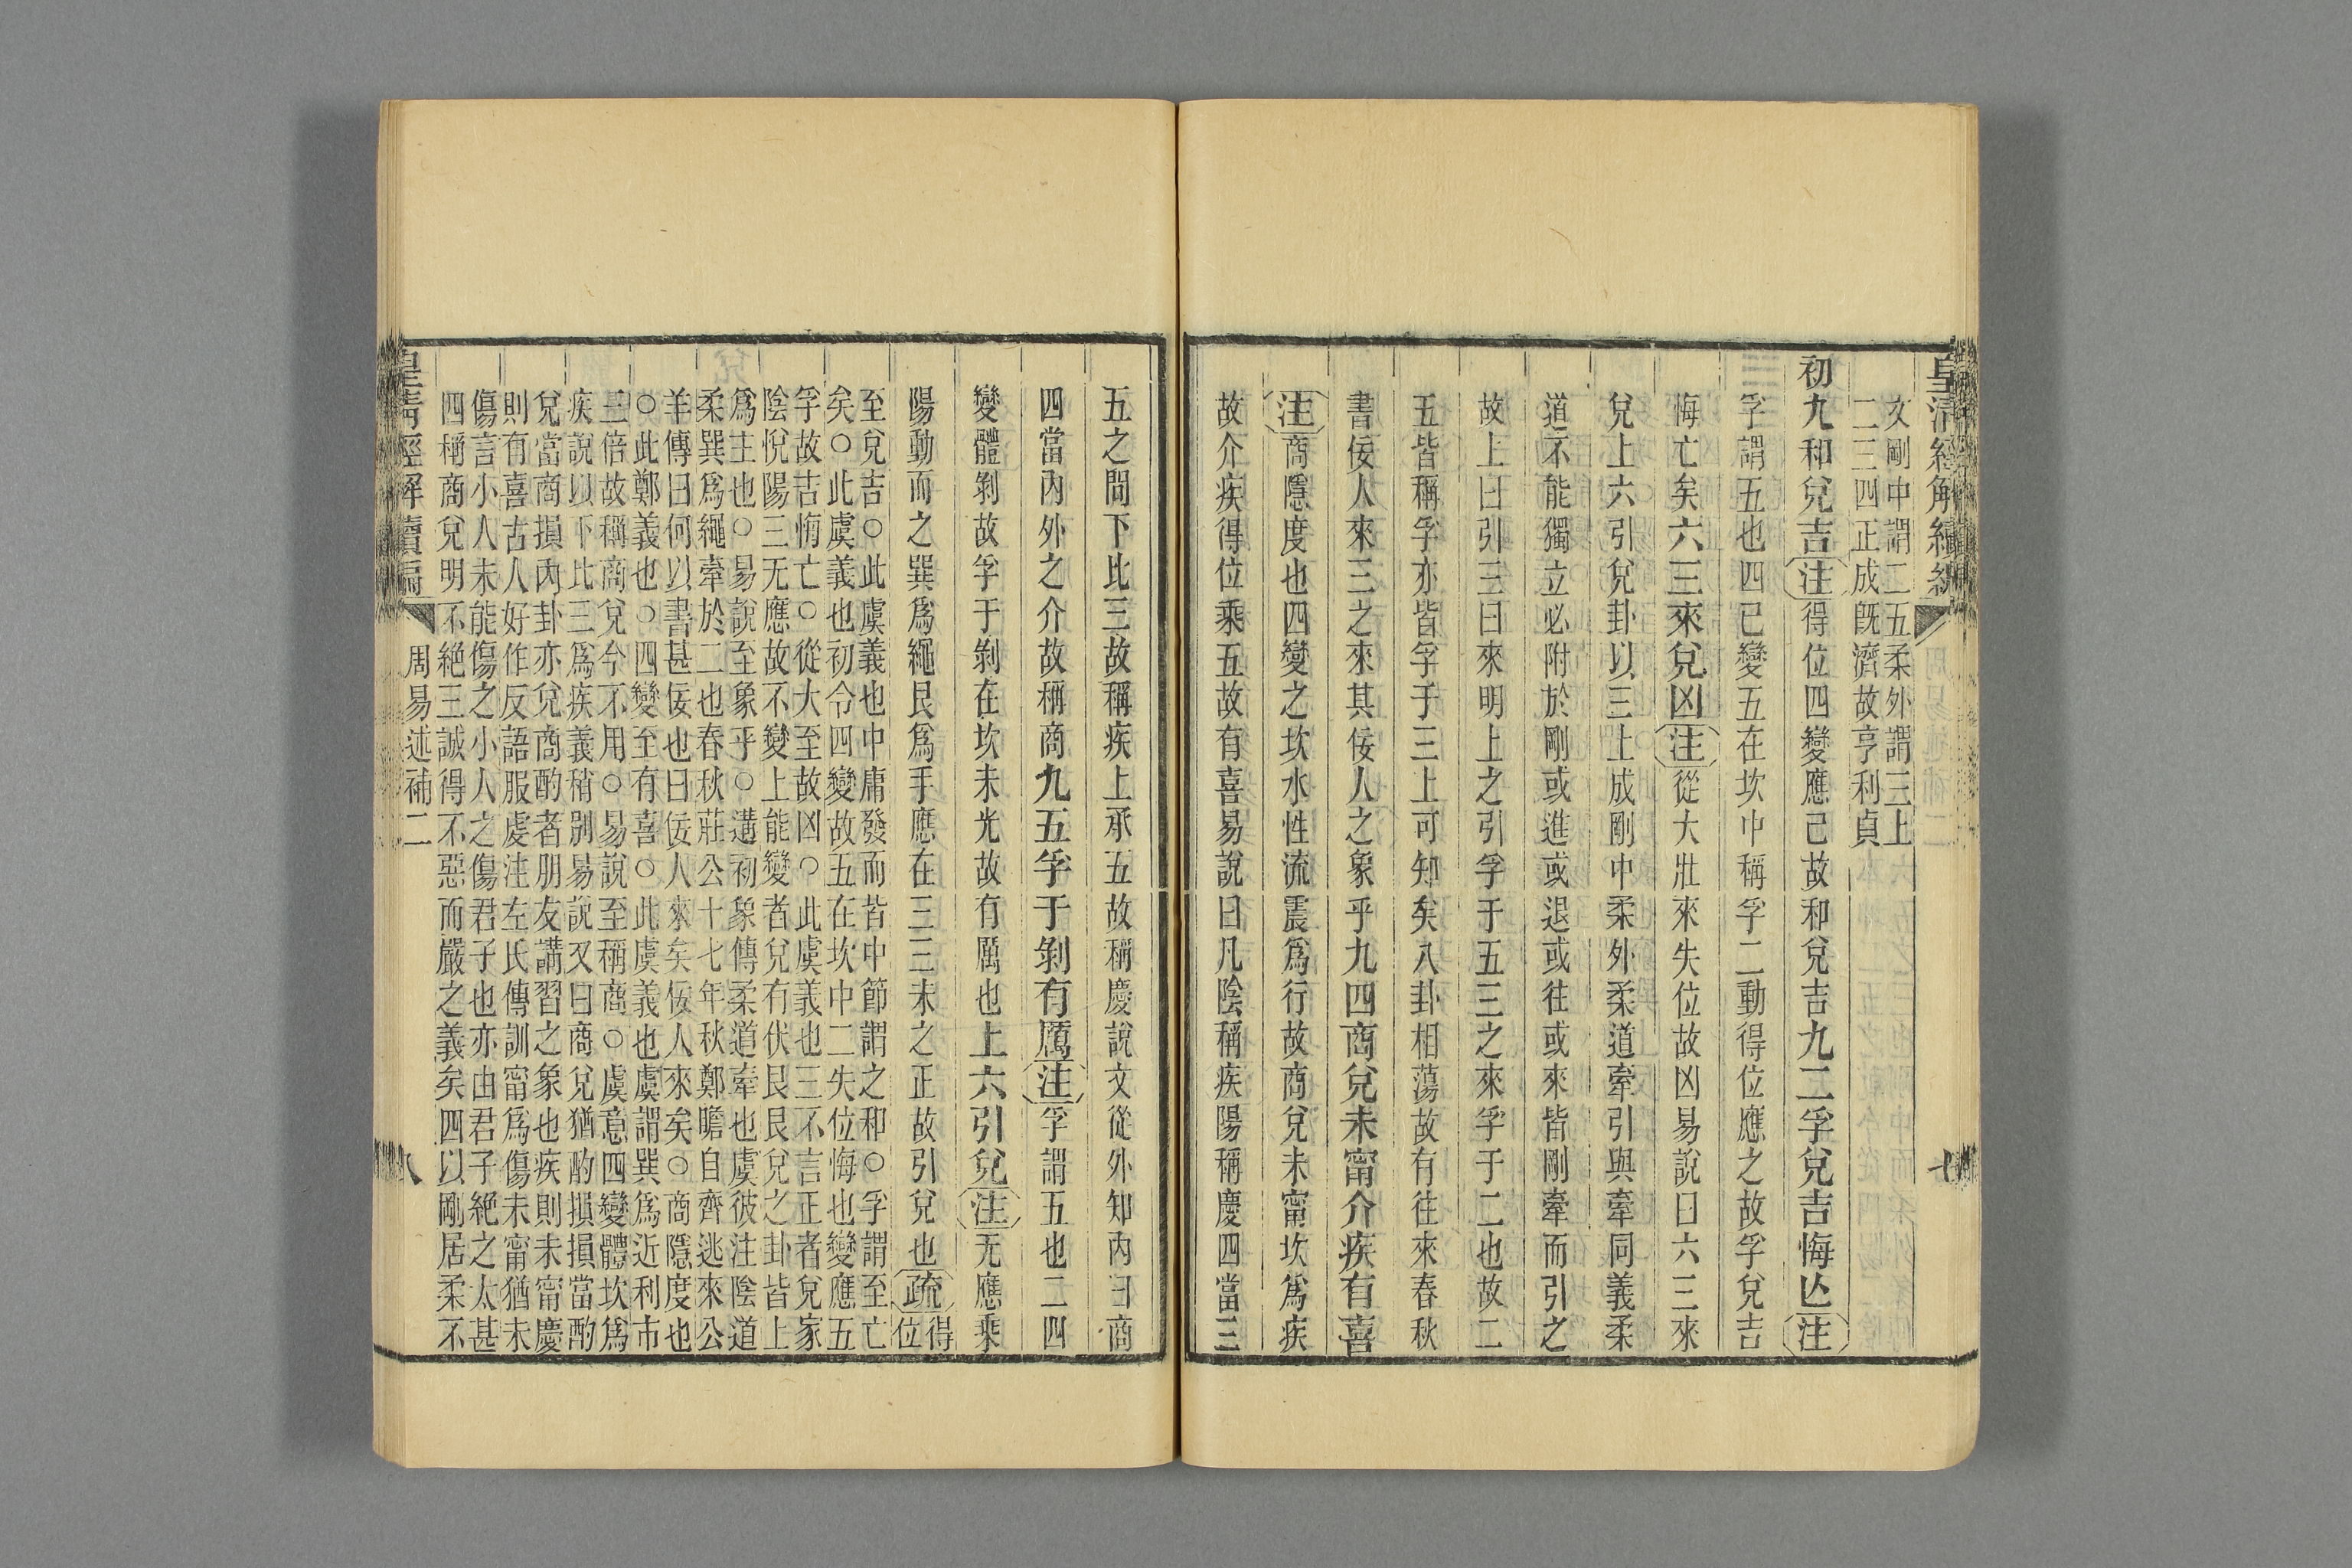 皇清經解續編
文剛中謂二五柔外謂三上
二三四正成既濟故亨利貞
初九和兌吉注得位四變應己故和兌吉九二孚兌吉悔亾注
孚謂五也四已變五在坎中稱孚二動得位應之故孚兌吉
悔亡矣六三來兌凶注從大壯來失位故凶易說曰六三來
兌上六引兌卦以三上成剛中柔外柔道牽引與牽同義柔
道不能獨立必附於剛或進或退或往或來皆剛牽而引之
故上曰引三曰來明上之引孚于五三之來孚于二也故二
五皆稱孚亦皆孚于三上可知矣八卦相蕩故有往來春秋
書佞人來三之來其佞人之象乎九四商兌未甯介疾有喜
注商隱度也四變之坎水性流震爲行故商兌未甯坎爲疾
故介疾得位乘五故有喜易說曰凡陰稱疾陽稱慶四當三
五之間下比三故稱疾上承五故稱慶說文從外知內曰商
四當內外之介故稱商九五孚于剝有厲注孚謂五也二四
變體剝故孚于剝在坎未光故有厲也上六引兌注无應乘
陽動而之巽爲繩艮爲手應在三三未之正故引兌也疏得位
至兌吉○此虞義也中庸發而皆中節謂之和○孚謂至亡
矣○此虞義也初令四變故五在坎中二失位悔也變應五
孚故吉悔亡○從大至故凶○此虞義也三不言正者兌家
陰悅陽三无應故不變上能變者兌有伏艮艮兌之卦皆上
爲主也○易說至象乎○遘初象傳柔道牽也虞彼注陰道
柔巽爲繩牽於二也春秋莊公十七年秋鄭瞻自齊逃來公
羊傳曰何以書甚佞也曰佞人來矣佞人來矣○商隱度也
○此鄭義也○四變至有喜○此虞義也虞謂巽爲近利市
三倍故稱商兌今不用○易說至稱商○虞意四變體坎爲
疾說以下比三爲疾義稍別易說又曰商兌猶酌損損當酌
兌當商損內卦亦兌商酌者朋友講習之象也疾則未甯慶
則有喜古人好作反語服虔注左氏傳訓甯爲傷未甯猶未
傷言小人未能傷之小人之傷君子也亦由君子絕之太甚
四稱商兌明不絕三誠得不惡而嚴之義矣四以剛居柔不
皇清經解續編
周易述補二
八